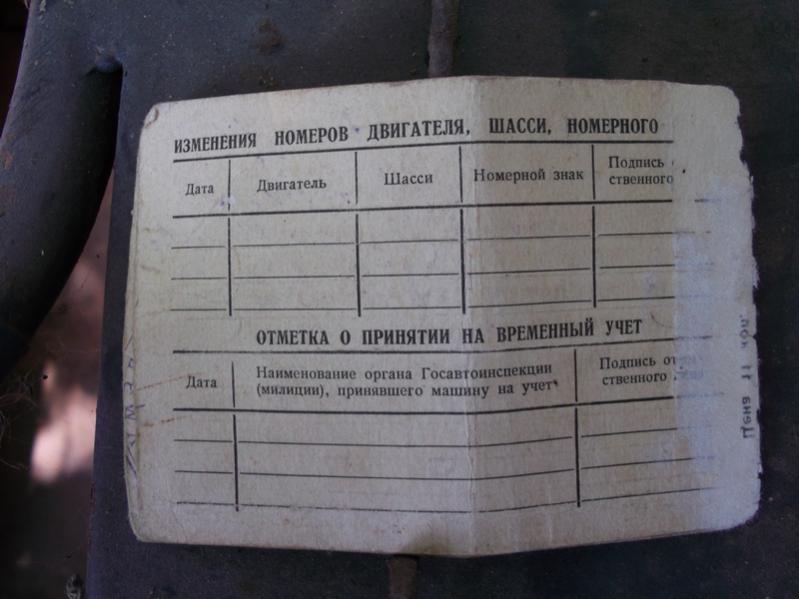 ИЗМЕНЕНИЯ НОМЕРОВ ДВИГАТЕЛЯ, ШАССИ, НОМЕРНОГО
Дата
Двигатель
Шасси
Номерной знак
Подпись
ственного
ОТМЕТКА О ПРИНЯТИИ НА ВРЕМЕННЫЙ УЧЕТ
Дата
Наименование органа Госавтоинспекции
(милиции), принявшего машину на учет
Подпись от
ственного
Цена 11 коп.